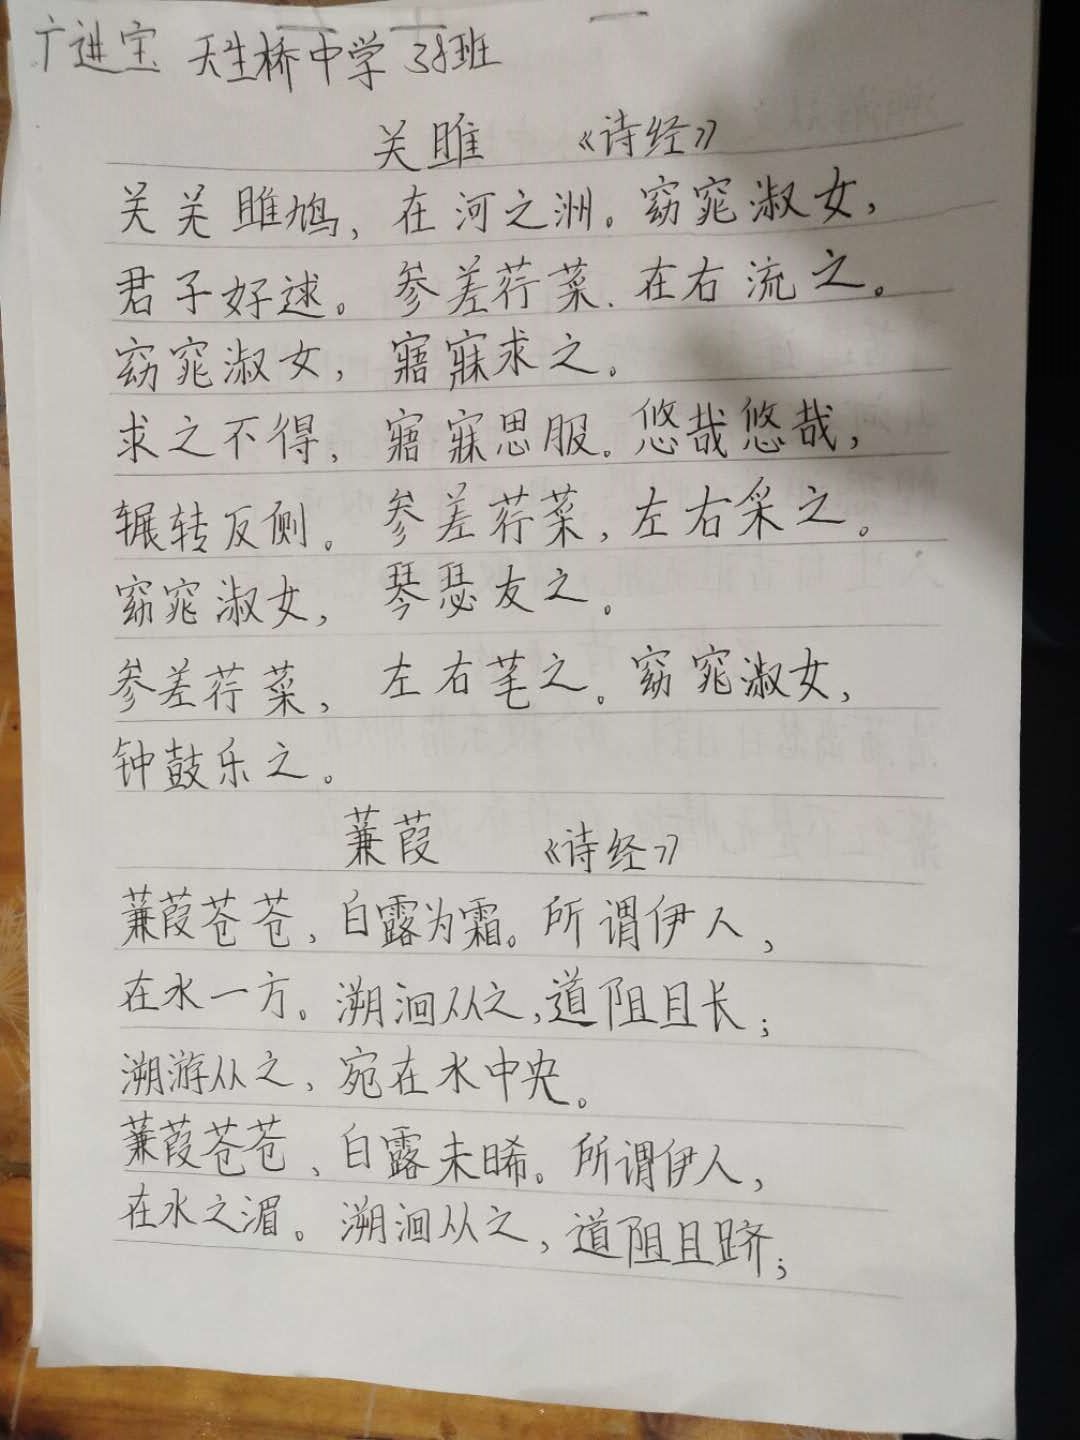 广进宝 天生桥中学 38班
关雎 《诗经》
关关雎鸠，在河之洲。窈窕淑女，
君子好逑。参差荇菜、在右流之。
窈窕淑女，寤寐求之。
求之不得，寤寐思服。悠哉悠哉，
辗转反侧。参差荇菜，左右采之。
窈窕淑女，琴瑟友之。
参差荇菜，左右芼之。窈窕淑女，
钟鼓乐之。
蒹葭 《诗经》
蒹葭苍苍、白露为霜。所谓伊人，
在水一方。溯洄从之，道阻且长；
溯游从之、宛在水中央。
蒹葭苍苍、白露未晞。所谓伊人，
在水之湄。溯洄从之，道阻且跻；